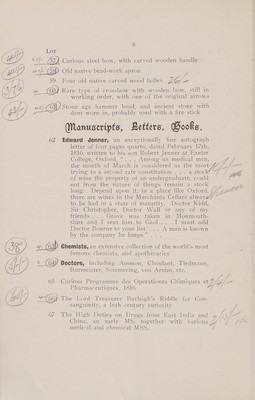 8
Lot
57 Curious steel hoe, with carved wooden handle
58 Old native bead-work apron
59 Four old native carved wood hoes 26/-
60 Rare type of crossbow with wooden bow, still in
working order, with one of the original arrows
61 Stone age hammer head, and ancient stone with
dent worn in, probably used with a fire stick
Manuscripts, Letters, Books.
62 Edward Jenner, an exceptionally fine autograph
letter of four pages quarto, dated February 17th,
1810, written to his son Robert Jenner at Exeter
College, Oxford, ". . . Among us medical men,
the month of March is considered as the most
trying to a second rate constitution . . . a stock
of wine the property of an undergraduate, could
not from the nature of things remain a stock
long. Depend upon it, in a place like Oxford,
there are wines in the Merchants Cellars always
to be had in a state of maturity. Doctor Kidd,
Sir Christopher, Doctor Wall or any of my
friends . . . Grove was taken in Monmouth-
shire and I sent him to Gaol . . . I must add
Doctor Bourne to your list . . . A man is known
by the company he keeps" . . .
63 Chemists, an extensive collection of the world's most
famous chemists, and apothecaries
64 Doctors, including Ammon, Choulant, Tiedmann,
Burmeister, Sommering, von Arnim, etc.
65 Curious Programme des Operations Chimiques et
Pharmaceutiques, 1816
66 The Lord Treasurer Burleigh's Riddle for Con-
sanguinity, a 16th century curiosity
67 The High Duties on Drugs from East India and
China, an early MS. together with various
medical and chemical MSS.